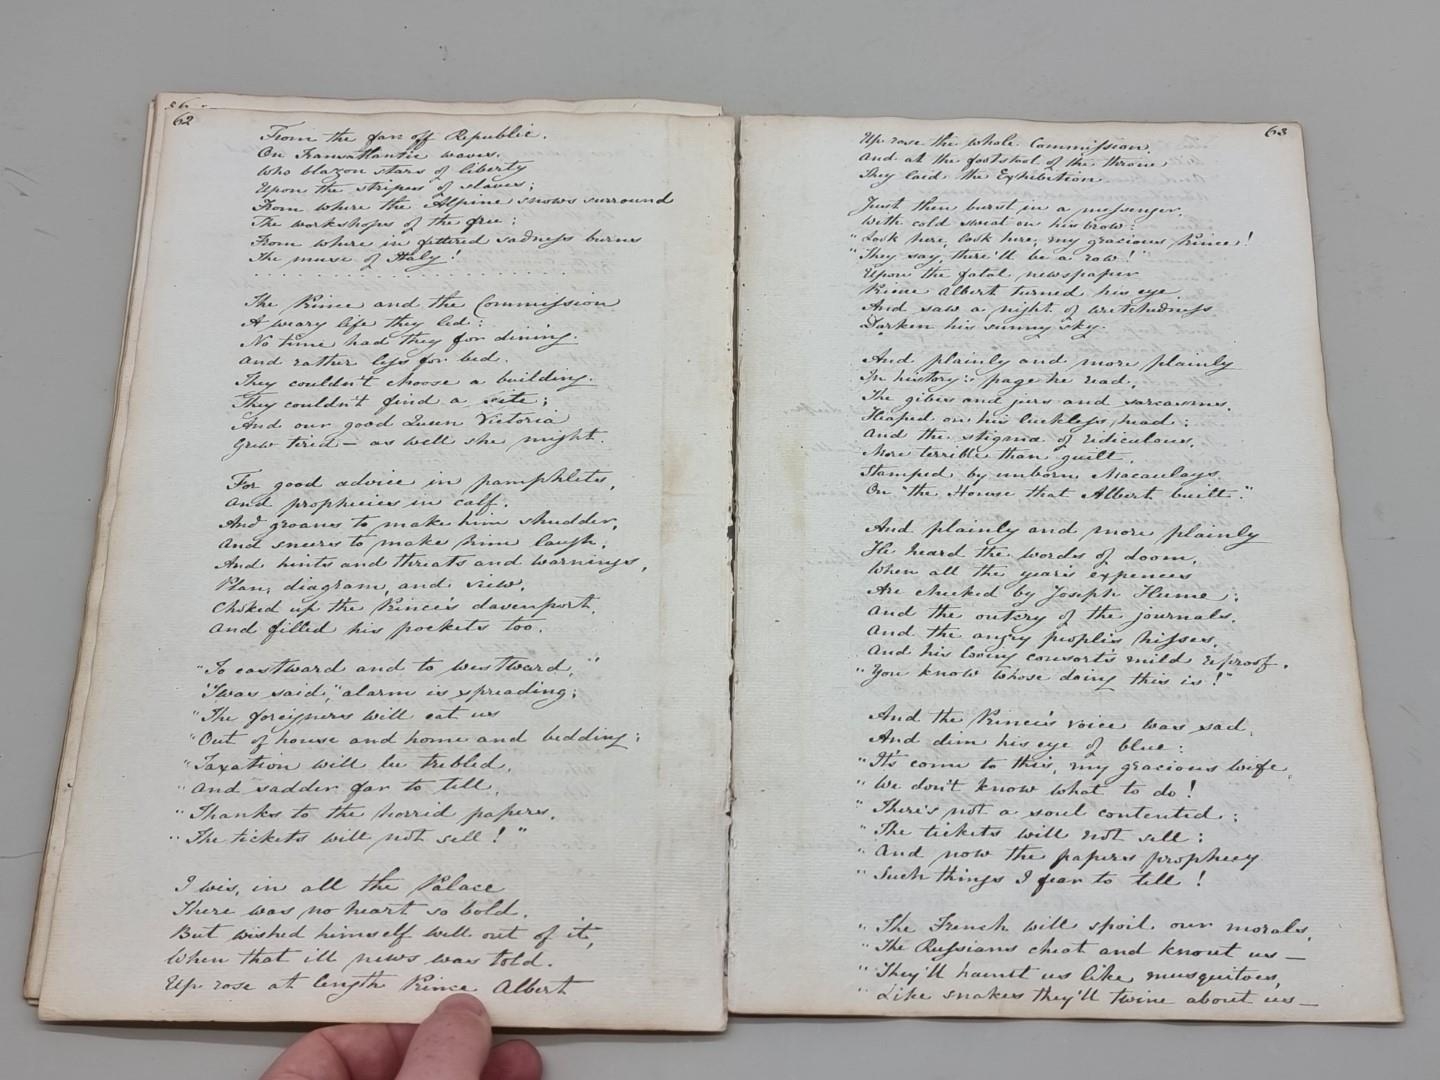 56
62
From the far off Republic.
On Transatlantic waves.
Who blazon stars of liberty
Upon the stripes of slaves;
From where the Alpine snows surround
The workshops of the free:
From where in fettered sadness burns
The muse of Italy!
The Prince and the Commission
A weary life they led:
No time had they for dining.
And rather less for bed.
They couldn't choose a building.
They couldn't find a site;
And our good Queen Victoria
Grew tired — as well she might.
For good advice in pamphlets,
And prophecies in calf.
And groans to make him shudder,
And sneers to make him laugh.
And hints and threats and warnings,
Plan, diagram, and view,
Choked up the Prince's davenport.
And filled his pockets too.
"To eastward and to westward,"
'Twas said, "alarm is spreading;
"The foreigners will eat us
"Out of house and home and bedding;
"Taxation will be trebled,
"And sadder far to tell,
"Thanks to the horrid papers,
"The tickets will not sell!"
I wis, in all the Palace
There was no heart so bold.
But wished himself well out of it,
When that ill news was told.
Up rose at length Prince Albert
63
Up rose the whole Commission,
And at the footstool of the throne
They laid the Exhibition.
Just then burst in a messenger,
With cold sweat on his brow:
"Look here, look here, my gracious Prince!
"They say there'll be a row!"
Upon the fatal newspaper
Prince Albert turned his eye,
And saw a night of wretchedness
Darken his sunny sky.
And plainly and more plainly
In history's page he read,
The gibes and jeers and sarcasms,
Heaped on his luckless head:
And the stigma of ridiculous,
More terrible than guilt,
Stamped by unborn Macaulays,
On "the House that Albert built."
And plainly and more plainly
He heard the words of doom,
When all the year's expences
Are checked by Joseph Hume;
And the outcry of the journals,
And the angry people's hisses,
And his loving consort's mild reproof,
"You know whose doing this is!"
And the Prince's voice was sad,
And dim his eye of blue:
"It's come to this, my gracious wife,
"We don't know what to do!
"There's not a soul contented;
"The tickets will not sell;
"And now the papers prophecy
"Such things I fear to tell!
"The French will spoil our morals,
"The Russians cheat and knout us —
"They'll haunt us like musquitoes,
"Like snakes they'll twine about us —